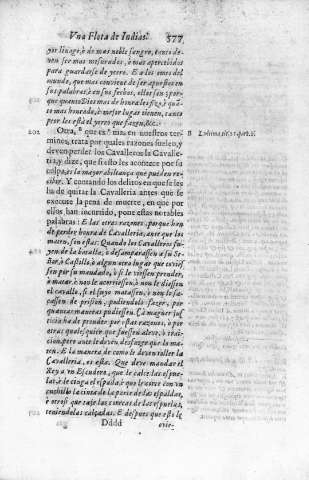 Vna Flota de Indias. 577
yor linage, è de mas noble sangre, tanto deuen
ser mas mesurados, è mas apercebidos
para guardarse de yerro. E a los omes del
mundo, que mas conuiene de ser apuestos en
sus palabras, è en sus fechos, ellos son: porque
quanto Dios mas de honra les fizo, è quanto
mas honrado, è mejor lugar tienen, tanto
peor les està el yerro que fazen, &c.
202 Otra, B que es mas en nuestros terminos,
trata por quales razones suelen, y
deven perder los Cavalleros la Cavalleria,
y dize, que si esto les acontece por su
culpa, es la mayor abiltança que pueden recibir.
Y contando los delitos en que se les
ha de quitar la Cavalleria antes que se
execute la pena de muerte, en que por
ellos han incurrido, pone estas notables
palabras: E las otras razones, porque han
de perder honra de Cavalleria, ante que los
maten, son estas: Quando los Cavalleros fuyen
de la batalla, è desamparassen a su Señor,
ò Castillo, ò algun otro lugar que tuviessen
por su mandado, ò si le viessen prender,
ò matar, è non le acorriessen, ò non le diessen
el cavallo, si el suyo matassen, ò non le sacassen
de prision, pudiendolo fazer, por
quantas maneras pudiessen. Ca maguer justicia
ha de prender por estas razones, ò por
otras qualesquier que fuessen aleve, ò traicion,
pero ante le deven desfazer que lo maten.
E la manera de como le deven toller la
Cavalleria, es esta. Que deve mandar el
Rey a vn Escudero, que le calce las espuelas,
è le cinga el espada, è que le corte con vn
cuchillo la cinta de la parte de las espaldas,
è otrosi que taje las correas de las espuelas,
teniendolas calçadas. E despues que esto le
Dddd ovie-
B L. vltima, tit. 21. part. 2.